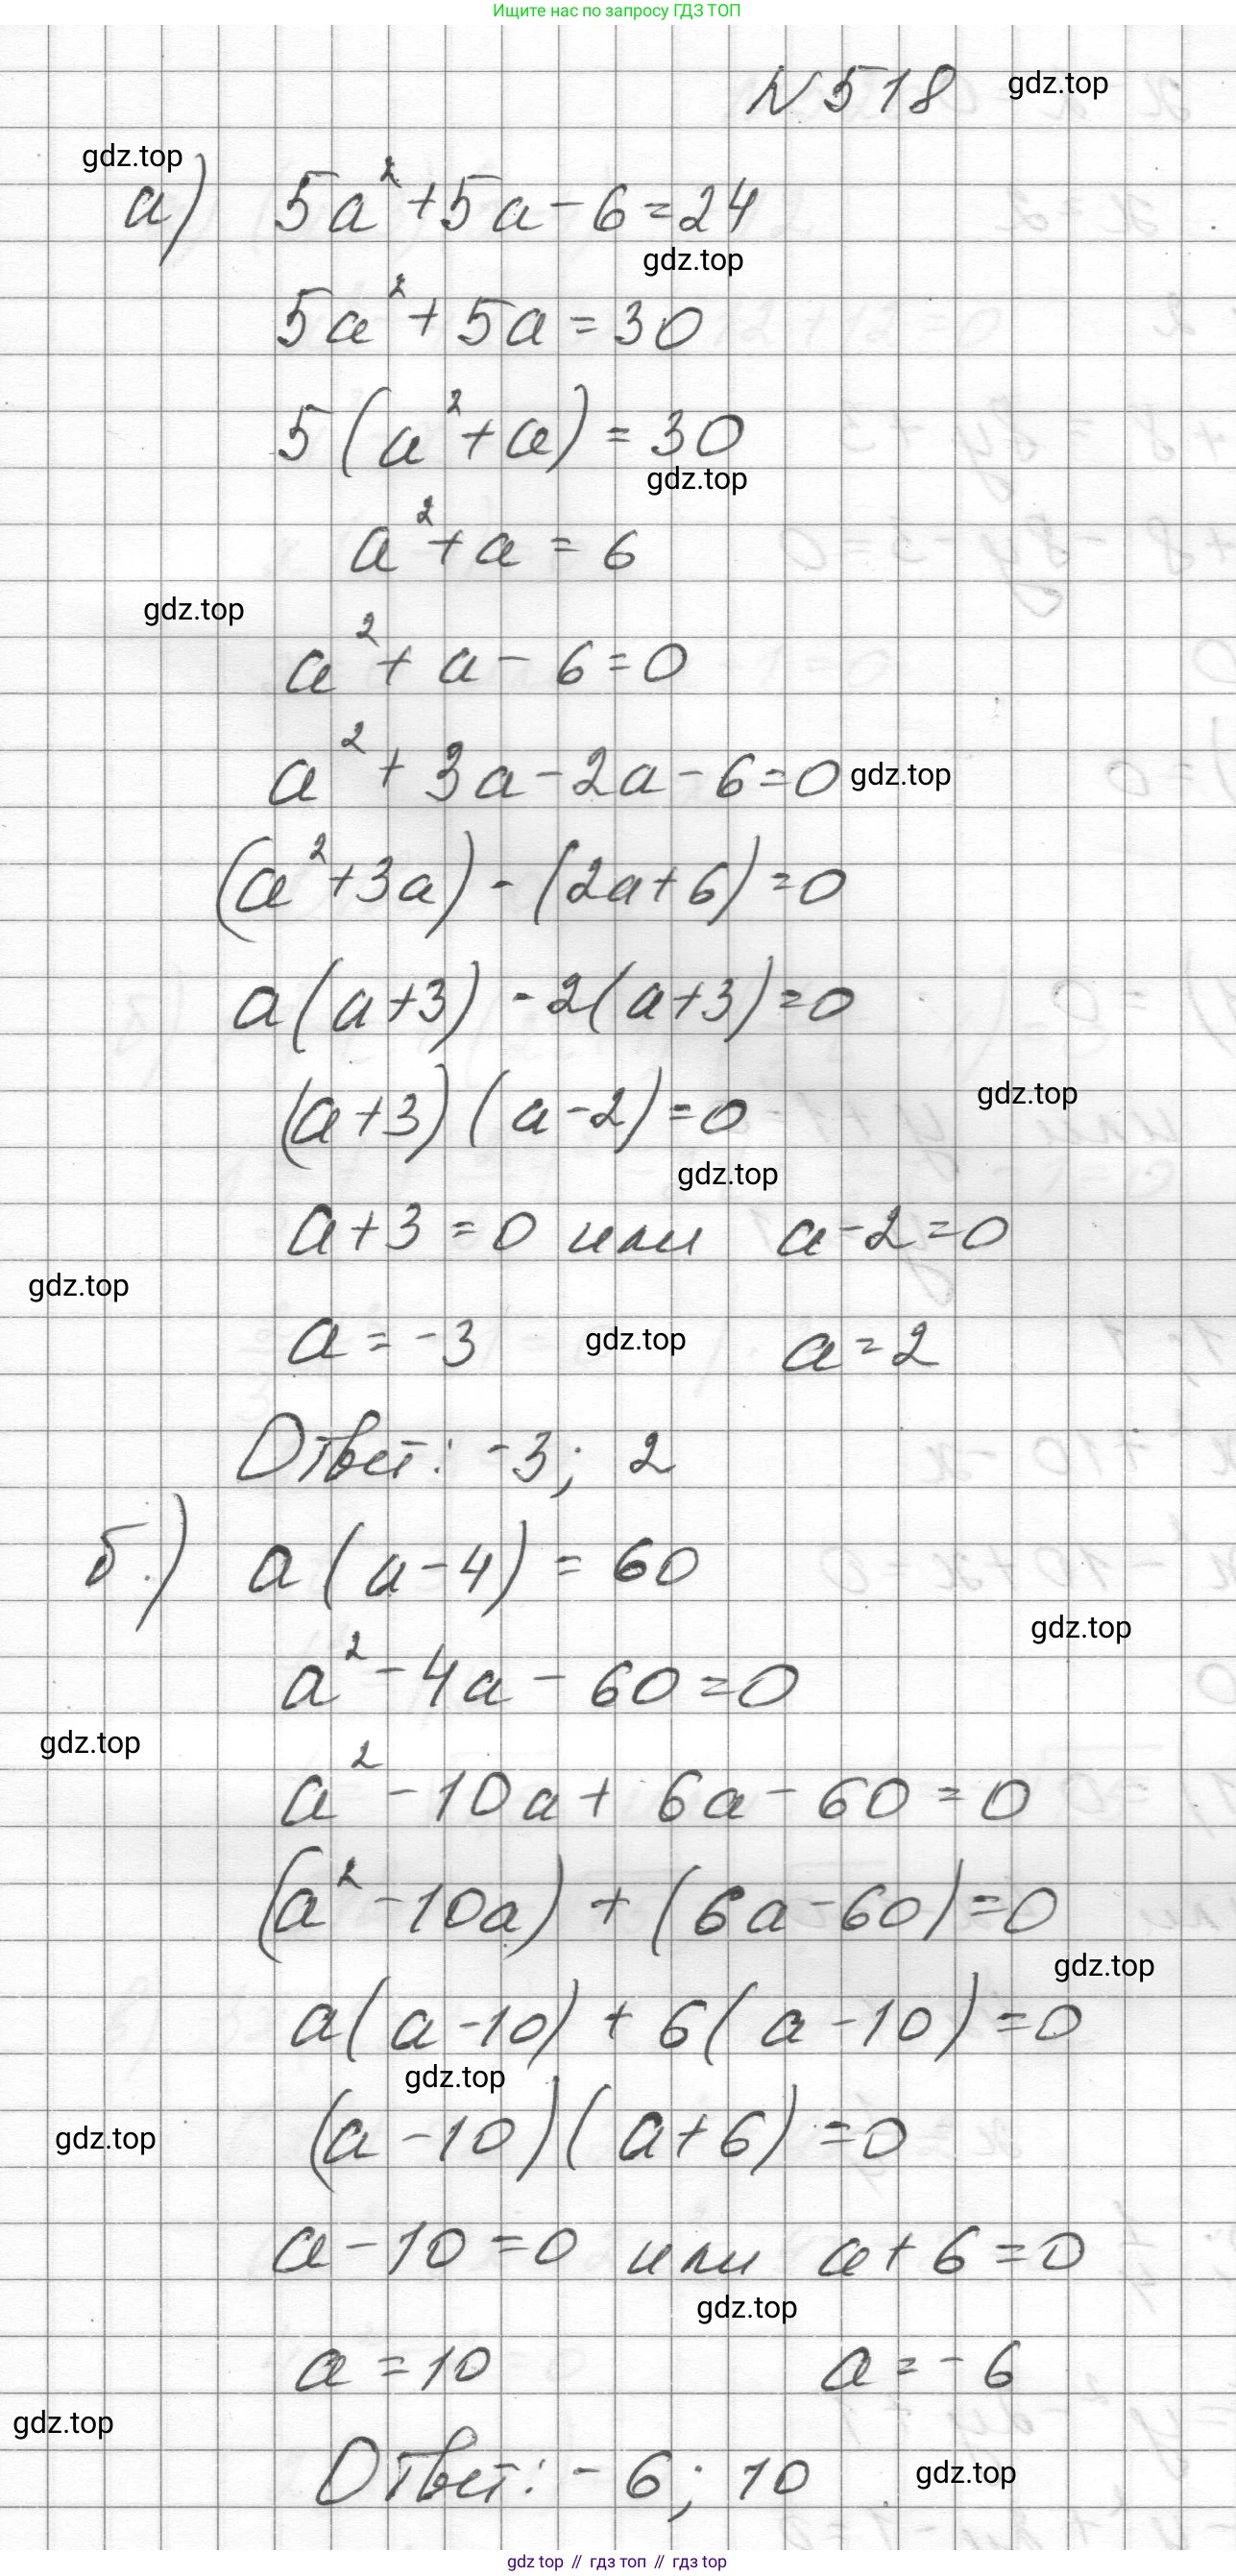 Ищите нас по запросу ГДЗ ТОП
N 518 gdz.top
gdz.top
а) 5a² + 5a - 6 = 24
gdz.top
5a² + 5a = 30
5(a² + a) = 30
gdz.top
a² + a = 6
gdz.top
a² + a - 6 = 0
a² + 3a - 2a - 6 = 0 gdz.top
(a² + 3a) - (2a + 6) = 0
a(a + 3) - 2(a + 3) = 0
gdz.top
(a + 3)(a - 2) = 0
gdz.top
a + 3 = 0 или a - 2 = 0
gdz.top
a = -3 gdz.top a = 2
Ответ: -3; 2
б.) a(a - 4) = 60
gdz.top
a² - 4a - 60 = 0
gdz.top
a² - 10a + 6a - 60 = 0
(a² - 10a) + (6a - 60) = 0
gdz.top
a(a - 10) + 6(a - 10) = 0
gdz.top
(a - 10)(a + 6) = 0
gdz.top
a - 10 = 0 или a + 6 = 0
gdz.top
a = 10 a = -6
gdz.top
Ответ: -6; 10 gdz.top
gdz top // гдз топ // гдз top